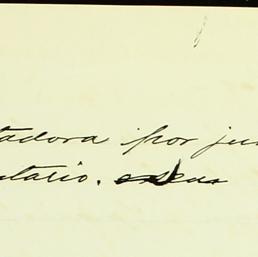 tadora por ju
tario.